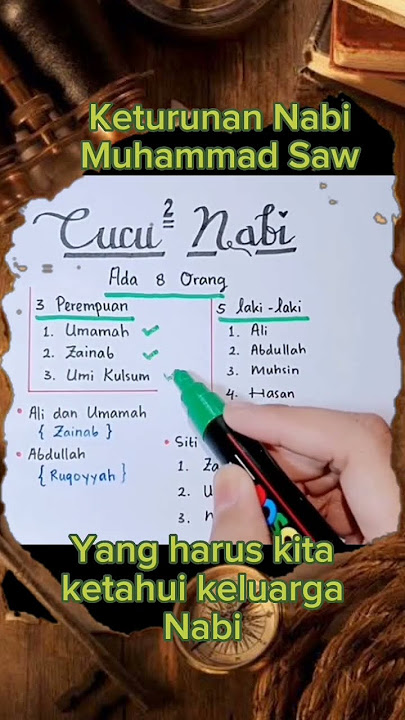 Keturunan Nabi
Muhammad Saw
Cucu² Nabi
Ada 8 Orang
3 Perempuan
1. Umamah
2. Zainab
3. Umi Kulsum
5 laki-laki
1. Ali
2. Abdullah
3. Muhsin
4. Hasan
• Ali dan Umamah
{ Zainab }
• Abdullah
{ Ruqoyyah }
• Siti
1. Za
2. U
3.
Yang harus kita
ketahui keluarga
Nabi